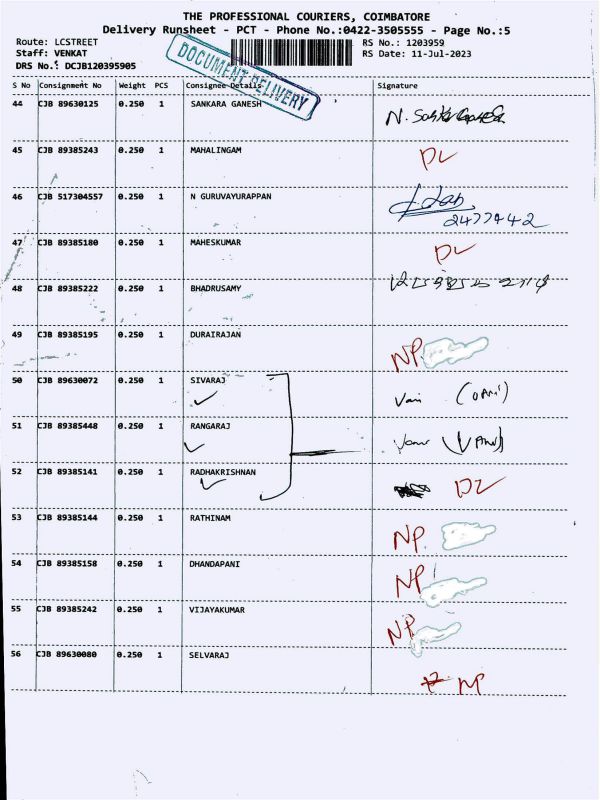 THE PROFESSIONAL COURIERS, COIMBATORE
Delivery Runsheet - PCT - Phone No.:0422-3505555 - Page No.:5
Route: LCSTREET RS No.: 1203959
Staff: VENKAT RS Date: 11-Jul-2023
DRS No.: DCJB120395905
DOCUMENT DELIVERY
S No Consignment No Weight PCS Consignee Details Signature
44 CJB 89630125 0.250 1 SANKARA GANESH N.
45 CJB 89385243 0.250 1 MAHALINGAM DL
46 CJB 517304557 0.250 1 N GURUVAYURAPPAN
2477442
47 CJB 89385180 0.250 1 MAHESKUMAR DL
48 CJB 89385222 0.250 1 BHADRUSAMY
49 CJB 89385195 0.250 1 DURAIRAJAN NP.
50 CJB 89630072 0.250 1 SIVARAJ Vani
51 CJB 89385448 0.250 1 RANGARAJ
52 CJB 89385141 0.250 1 RADHAKRISHNAN DL
53 CJB 89385144 0.250 1 RATHINAM NP.
54 CJB 89385158 0.250 1 DHANDAPANI NP
55 CJB 89385242 0.250 1 VIJAYAKUMAR NP
56 CJB 89630080 0.250 1 SELVARAJ NP